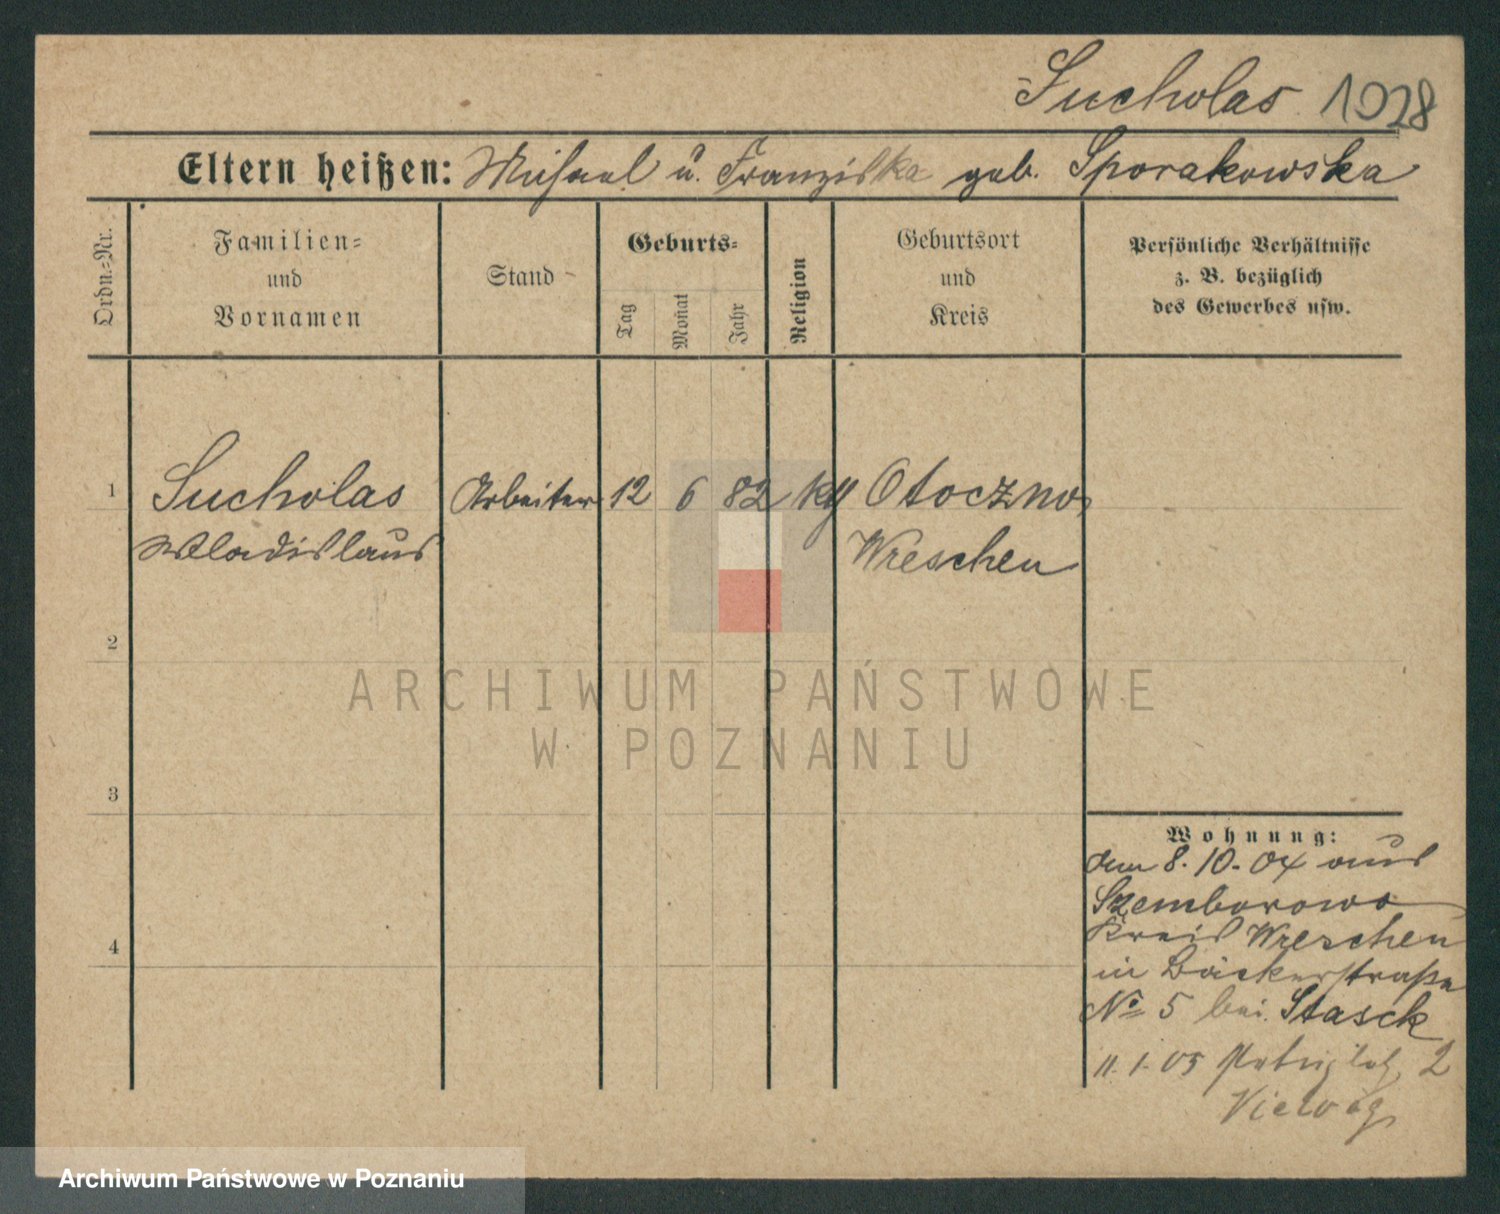 Sucholas 1028
Eltern heißen: Michael u. Franziska geb. Sporakowska
Ordn.=Nr.
Familien=
und
Vornamen
Stand
Geburts=
Tag
Monat
Jahr
Religion
Geburtsort
und
Kreis
Persönliche Verhältnisse
z. B. bezüglich
des Gewerbes usw.
1 Sucholas Arbeiter 12 6 82 kg Otoczno,
Wladislaus Wreschen
2
ARCHIWUM PAŃSTWOWE
W POZNANIU
3
Wohnung:
den 8.10.04 aus
Szemborowo
Kreis Wreschen
4
in Bäckerstraße
№ 5 bei Stasck
11.1.05 2
Archiwum Państwowe w Poznaniu